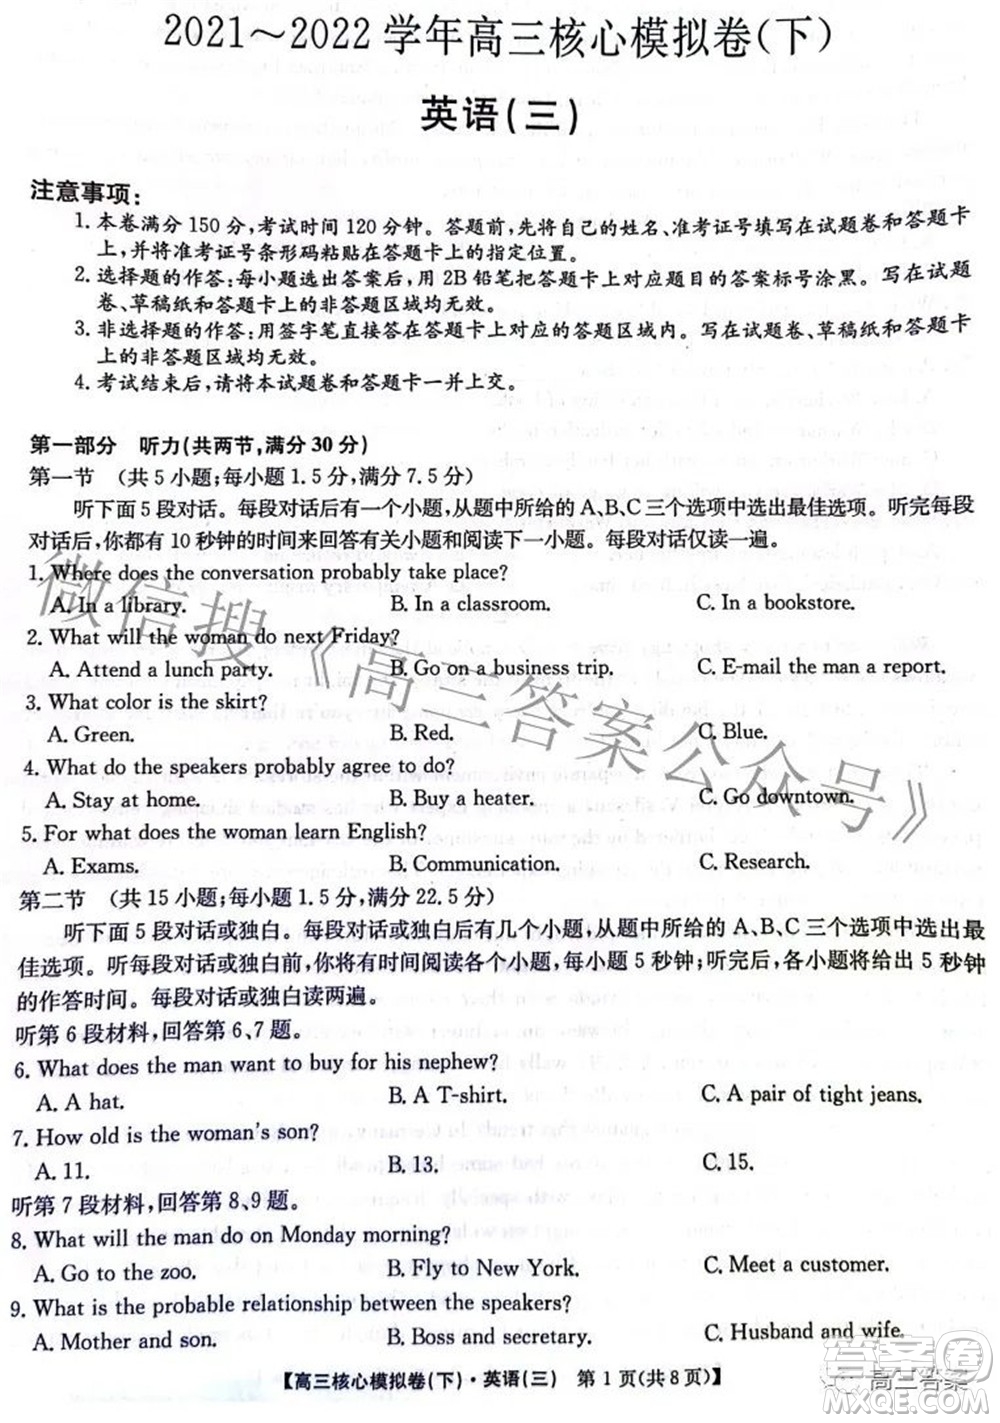 2021～2022学年高三核心模拟卷(下)
英语(三)
注意事项:
1. 本卷满分 150 分,考试时间 120 分钟。答题前,先将自己的姓名、准考证号填写在试题卷和答题卡
上,并将准考证号条形码粘贴在答题卡上的指定位置。
2. 选择题的作答:每小题选出答案后,用 2B 铅笔把答题卡上对应题目的答案标号涂黑。写在试题
卷、草稿纸和答题卡上的非答题区域均无效。
3. 非选择题的作答:用签字笔直接答在答题卡上对应的答题区域内。写在试题卷、草稿纸和答题卡
上的非答题区域均无效。
4. 考试结束后,请将本试题卷和答题卡一并上交。
第一部分 听力(共两节,满分 30 分)
第一节 (共 5 小题;每小题 1. 5 分,满分 7. 5 分)
听下面 5 段对话。每段对话后有一个小题,从题中所给的 A、B、C三个选项中选出最佳选项。听完每段
对话后,你都有 10 秒钟的时间来回答有关小题和阅读下一小题。每段对话仅读一遍。
1. Where does the conversation probably take place?
A. In a library. B. In a classroom. C. In a bookstore.
2. What will the woman do next Friday?
A. Attend a lunch party. B. Go on a business trip. C. E-mail the man a report.
3. What color is the skirt?
A. Green. B. Red. C. Blue.
4. What do the speakers probably agree to do?
A. Stay at home. B. Buy a heater. C. Go downtown.
5. For what does the woman learn English?
A. Exams. B. Communication. C. Research.
第二节 (共 15 小题;每小题 1. 5 分,满分 22. 5 分)
听下面 5 段对话或独白。每段对话或独白后有几个小题,从题中所给的 A、B、C三个选项中选出最
佳选项。听每段对话或独白前,你将有时间阅读各个小题,每小题 5 秒钟;听完后,各小题将给出 5 秒钟
的作答时间。每段对话或独白读两遍。
听第 6 段材料,回答第 6、7 题。
6. What does the man want to buy for his nephew?
A. A hat. B. A T-shirt. C. A pair of tight jeans.
7. How old is the woman's son?
A. 11. B. 13. C. 15.
听第 7 段材料,回答第 8、9 题。
8. What will the man do on Monday morning?
A. Go to the zoo. B. Fly to New York. C. Meet a customer.
9. What is the probable relationship between the speakers?
A. Mother and son. B. Boss and secretary. C. Husband and wife.
【高三核心模拟卷(下)·英语(三) 第 1 页(共 8 页)】
微信搜《高三答案公众号》
答案圈
高三答案